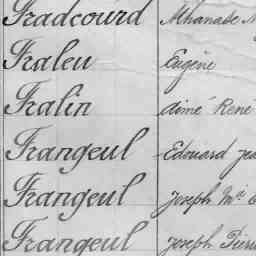 Fradcourd
Fraleu Eugène
Fralin Aimé René
Frangeul Edouard
Frangeul Joseph
Frangeul Joseph